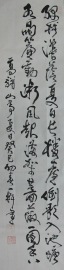 綠樹陰濃夏日長樓臺倒影入池塘
水晶簾動微風起滿架薔薇一院香
高駢山亭夏日癸巳初春